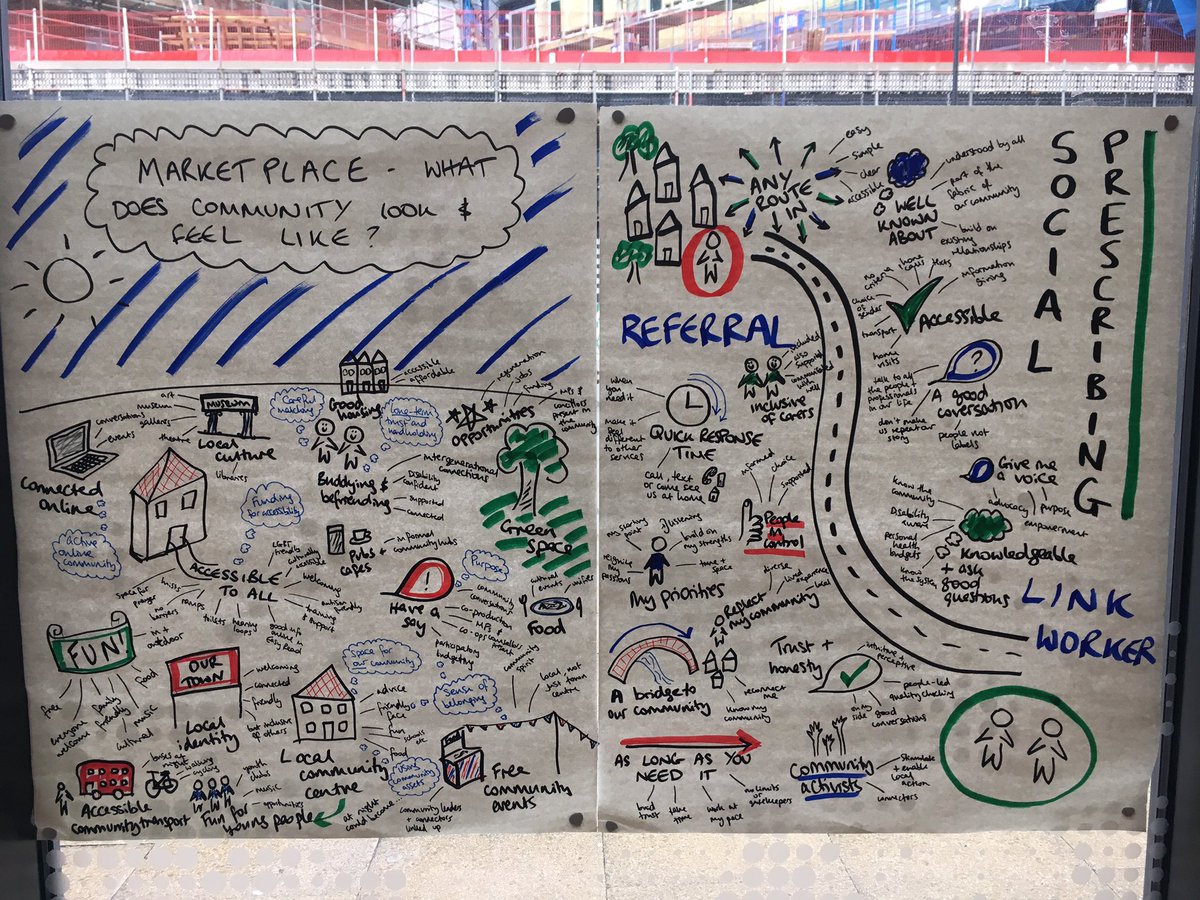 MARKETPLACE - WHAT
DOES COMMUNITY LOOK &
FEEL LIKE?
accessible
affordable
Good
housing
art
museum
galleries
theatre
libraries
MUSEUM
Local
culture
conversations
events
Connected
online
active
online
community
Careful
matching
long-term
trust and
handholding
Buddying &
befriending
Intergenerational
connections
Disability
confident
supported
connected
regeneration
jobs
funding
MPs &
councillors
present in the
community
Opportunities
Green
space
Funding
for accessibility
ACCESSIBLE
TO ALL
LGBT
friendly
culturally
sensitive
welcoming
autism friendly
training
& support
good info
online +
Easy Read
hearing
loops
toilets
ramps
no
barriers
in +
outdoor
space for
prayer
Pubs +
cafes
informed
community hubs
HAVE a
say
Purpose
community
conversations
co-production
MPs &
co-ops
participatory
budgeting
cultural
events
Food
community
spirit
FUN!
free
everyone
welcome
family
friendly
cultural
music
food
OUR
TOWN
Local
identity
welcoming
connected
friendly
but inclusive
of others
space for
our community
Local
community
centre
advice
friendly
face
fun
schools
etc
food
Sense of
belonging
local, not
just town
centre
using
community
assets
Food
Free
community
events
community leaders
+ connectors
linked up
buses at
night
walking
cycling
Accessible
community transport
youth
clubs
music
opportunities
Fun for
young people
at night
could become...
SOCIAL
PRESCRIBING
ANY
ROUTE
IN
easy
simple
clear
accessible
WELL
KNOWN
ABOUT
understood by all
part of the
fabric of
our community
build on
existing
relationships
REFERRAL
no
criteria
home
calls
texts
information
giving
choice of
gender
transport
home
visits
Accessible
when you
need it
make it
feel
different
to other
services
QUICK RESPONSE
TIME
call, text
or come see
us at home
included
also
supported
Inclusive
of carers
?
A good
conversation
talk to all
the people +
professionals
in our life
don't make
us repeat our
story
people not
labels
Give me
a voice
advocacy
purpose
empowerment
know the
community
Disability
aware
personal
health
budgets
know the system
Knowledgeable
+ ask
good
questions
informed
choice
supported
People
in
control
starting
point
listening
build on
my strengths
time +
space
recognise
my
passions
My priorities
diverse
lived experience
local
Reflect
my community
A bridge to
our community
reconnect
me
know my
community
Trust +
honesty
intuitive +
perceptive
people-led
quality checking
good
conversations
on my
side
LINK
WORKER
AS LONG AS YOU
NEED IT
build
trust
take
time
work at
my pace
no limits
or
gatekeepers
Community
activists
stimulate
+ enable
local
action
connectors